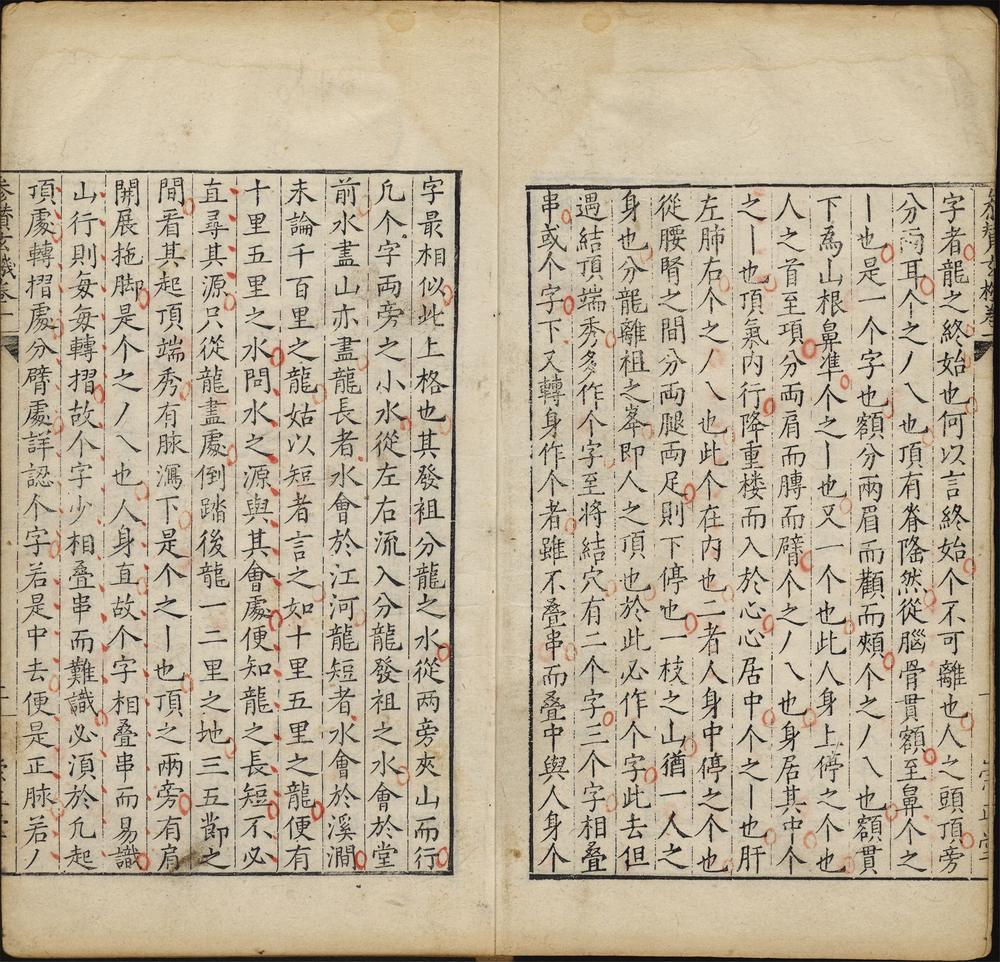 字者龍之終始也何以言終始个不可離也人之頭頂旁
分兩耳个之丿乀也頂有脊隆然從腦骨貫額至鼻个之
丨也是一个字也額分兩眉而顴而頰个之丿乀也額貫
下爲山根鼻準个之丨也又一个也此人身上停之个也
人之首至項分兩肩而膊而臂个之丿乀也身居其中个
之丨也頂氣內行降重楼而入於心心居中个之丨也肝
左肺右个之丿乀也此个在内也二者人身中停之个也
從腰腎之間分兩腿兩足則下停也一枝之山猶一人之
身也分龍離祖之峯即人之頂也於此必作个字此去但
遇結頂端秀多作个字至將結穴有二个字三个字相叠
串或个字下又轉身作个者雖不叠串而叠中與人身个
字最相似此上格也其發祖分龍之水從两旁夾山而行
凢个字两旁之小水從左右流入分龍發祖之水會於堂
前水盡山亦盡龍長者水會於江河龍短者水會於溪澗
未論千百里之龍姑以短者言之如十里五里之龍便有
十里五里之水問水之源與其會處便知龍之長短不必
直尋其源只從龍盡處倒踏後龍一二里之地三五節之
間看其起頂端秀有脉瀉下是个之丨也頂之两旁有肩
開展拖脚是个之丿乀也人身直故个字相叠串而易識
山行則每每轉摺故个字少相叠串而難識必須於凢起
頂處轉摺處分臂處詳認个字若是中去便是正脉若丿